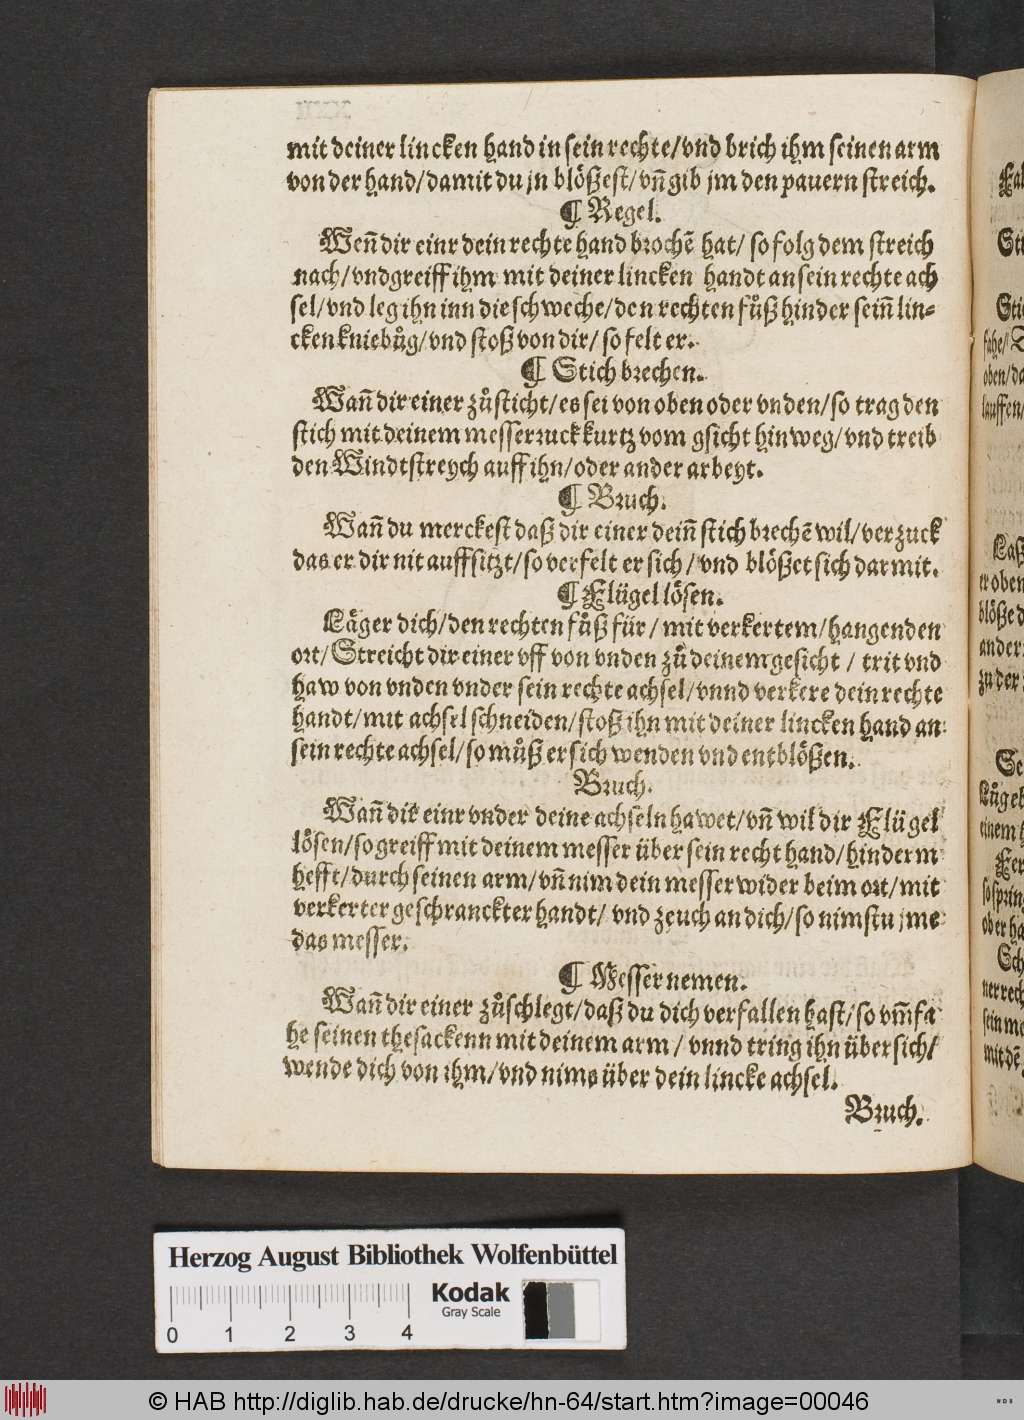 mit deiner lincken hand in sein rechte/vnd brich ihm seinen arm
von der hand/damit du jn blößest/vñ gib jm den pauern streich.
¶ Regel.
Weñ dir einr dein rechte hand brochẽ hat/ so folg dem streich
nach/vnd greiff ihm mit deiner lincken handt an sein rechte ach
sel/vnd leg ihn inn die schweche/den rechten fůß hinder sein̄ lin⸗
cken kniebůg/vnd stoß von dir/ so felt er.
¶ Stich brechen.
Wañ dir einer zůsticht/es sei von oben oder vnden/so trag den
stich mit deinem messer zuck kurtz vom gsicht hinweg/vnd treib
den Windtstreych auff ihn/oder ander arbeyt.
¶ Bruch.
Wañ du merckest daß dir einer dein̄ stich brechẽ wil/verzuck
das er dir nit auffsitzt/so verfelt er sich/vnd blößet sich darmit.
¶ Flügel lösen.
Läger dich/den rechten fůß für/ mit verkertem/hangenden
ort/Streicht dir einer vff von vnden zů deinem gesicht / trit vnd
haw von vnden vnder sein rechte achsel/vnnd verkere dein rechte
handt/mit achsel schneiden/stoß ihn mit deiner lincken hand an
sein rechte achsel/so můß er sich wenden vnd entblößen.
Bruch.
Wañ dir einr vnder deine achseln hawet/vñ wil dir Flügel
lösen/so greiff mit deinem messer über sein recht hand/hinderm
hefft/durch seinen arm/vñ nim dein messer wider beim ort/mit
verkerter geschranckter handt/ vnd zeuch an dich/so nimstu jme
das messer.
¶ Messer nemen.
Wañ dir einer zůschlegt/daß du dich verfallen hast/so vm̃fa
he seinen thesackenn mit deinem arm/ vnnd tring ihn übersich/
wende dich von ihm/vnd nims über dein lincke achsel.
Bruch.
Herzog August Bibliothek Wolfenbüttel
Kodak
Gray Scale
0 1 2 3 4
© HAB http://diglib.hab.de/drucke/hn-64/start.htm?image=00046